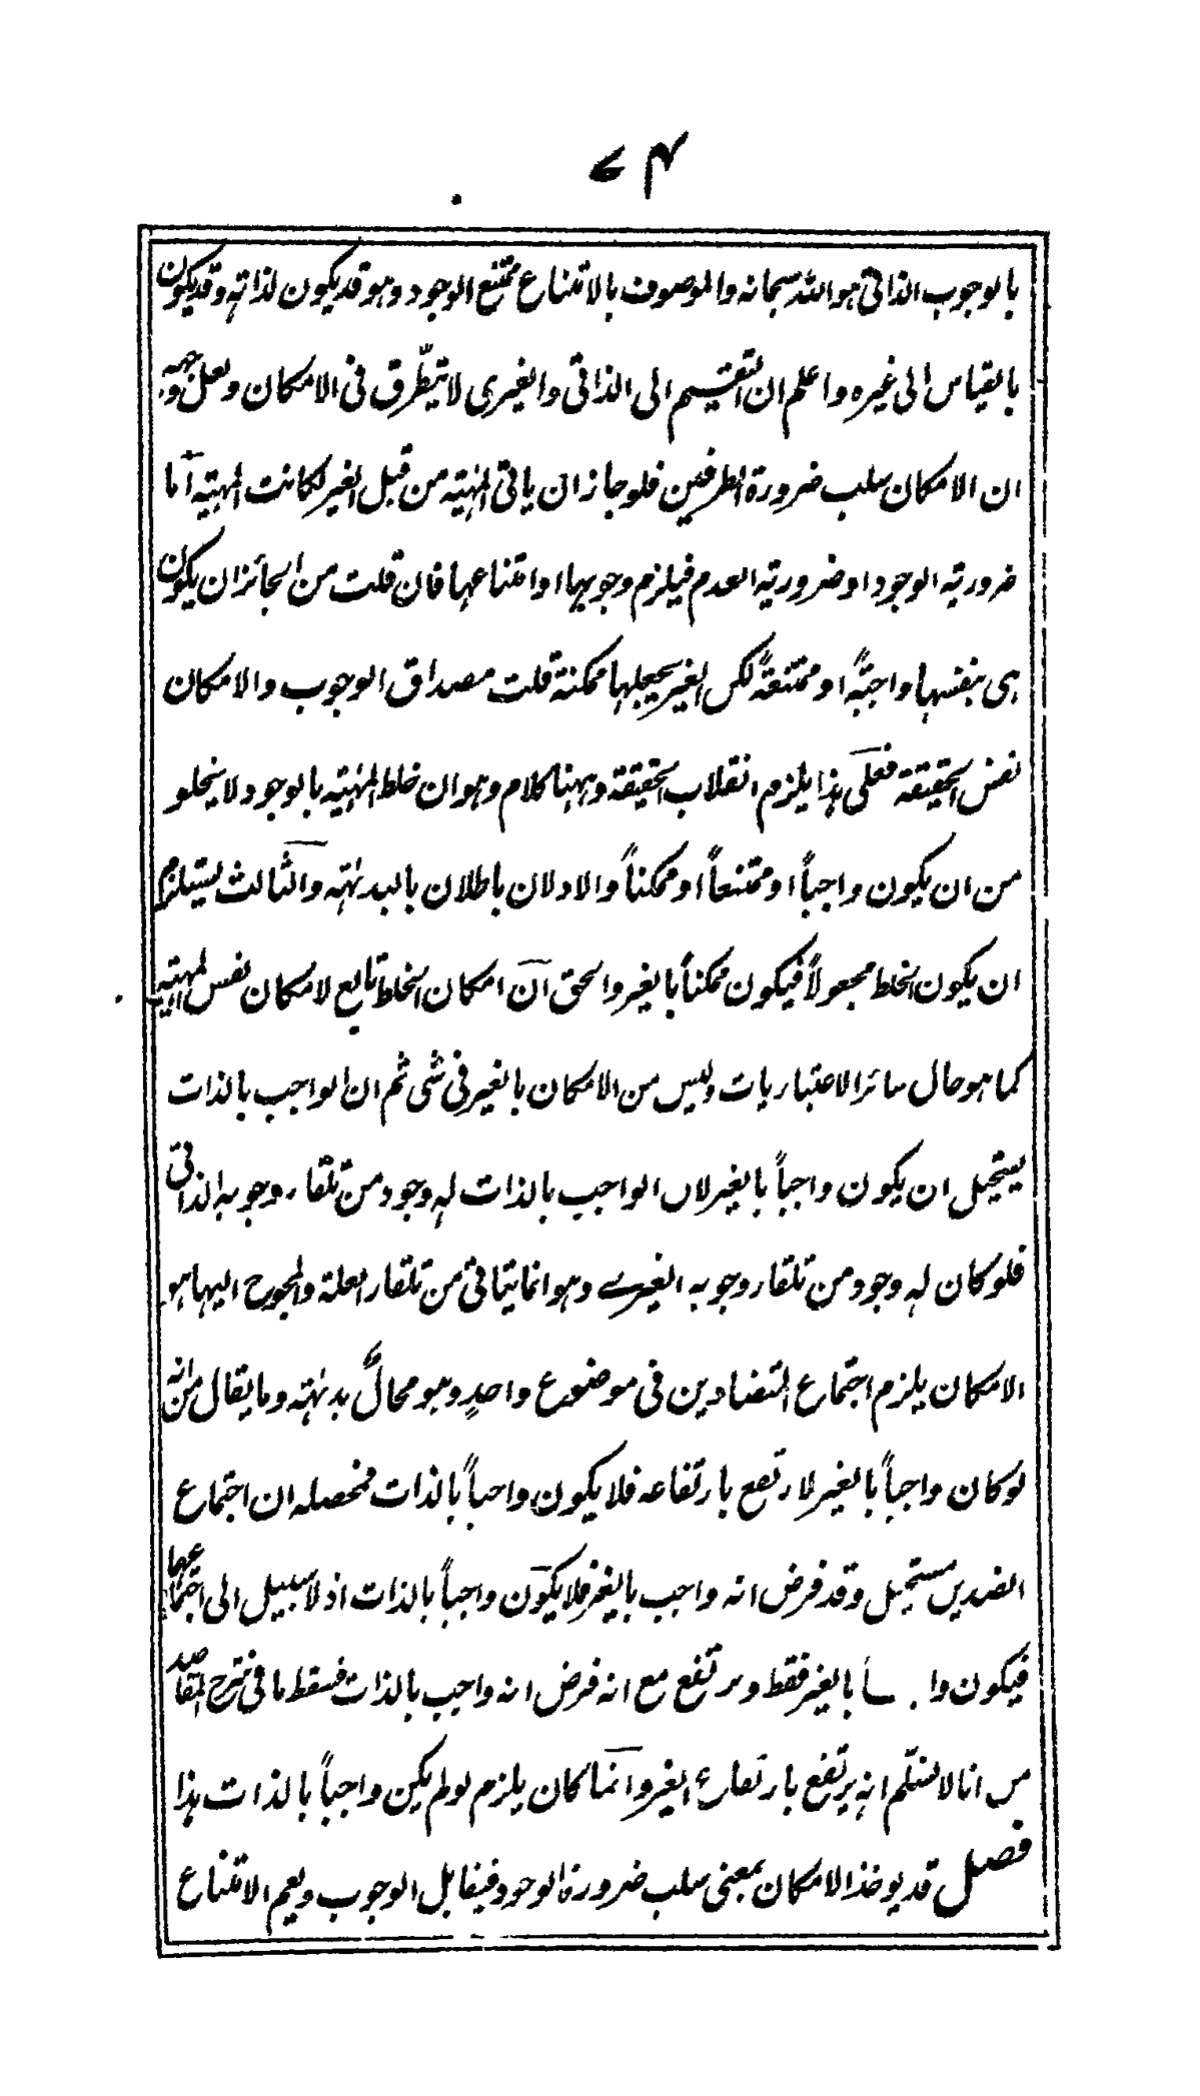 ٧٤
بالوجوب الذاتى هو الله سبحانه والموصوف بالامتناع ممتنع الوجود وهو قد يكون لذاته وقد يكون
بالقياس الى غيره واعلم ان التقسيم الى الذاتى والغيرى لا يتطّرق فى الامكان ولعل وجهه
ان الامكان سلب ضرورة الطرفين فلو جاز ان ياتى المهية من قبل الغير لكانت المهية اما
ضرورية الوجود او ضرورية العدم فيلزم وجوبها او امتناعها فان قلت من الجائز ان يكون
هى بنفسها واجبةً او ممتنعةً لكن الغير يجعلها ممكنة قلت مصداق الوجوب والامكان
نفس الحقيقة فعلى هذا يلزم انقلاب الحقيقة وههنا كلام وهو ان خلط المهية بالوجود لا يخلو
من ان يكون واجباً او ممتنعاً او ممكناً والاولان باطلان بالبديهة والثالث يستلزم
ان يكون الخلط مجعولاً فيكون ممكناً بالغير والحق ان امكان الخلط تابع لامكان نفس المهية
كما هو حال سائر الاعتباريات وليس من الامكان بالغير فى شى ثم ان الواجب بالذات
يستحيل ان يكون واجباً بالغير لان الواجب بالذات له وجود من تلقاء وجوبه الذاتى
فلو كان له وجود من تلقاء وجوبه الغيرے وهو انما يتاتى من تلقاء العلة والمحوج اليها هو
الامكان يلزم اجتماع المتضادين فى موضوع واحدٍ وهو محالٌ بديهة وما يقال من انه
لو كان واجباً بالغير لارتفع بارتفاعه فلا يكون واجباً بالذات فمحصله ان اجتماع
الضدين مستحيل وقد فرض انه واجب بالغير فلا يكون واجباً بالذات اذ لا سبيل الى اجتماعهما
فيكون بالغير فقط ويرتفع مع انه فرض انه واجب بالذات فسقط ما فى شرح المقاصد
من انا لا نسلّم انه يرتفع بارتفاع الغير وانما كان يلزم لو لم يكن واجباً بالذات هذا
فصل قد يوخذ الامكان بمعنى سلب ضرورة الوجود فيقابل الوجوب ويعم الامتناع